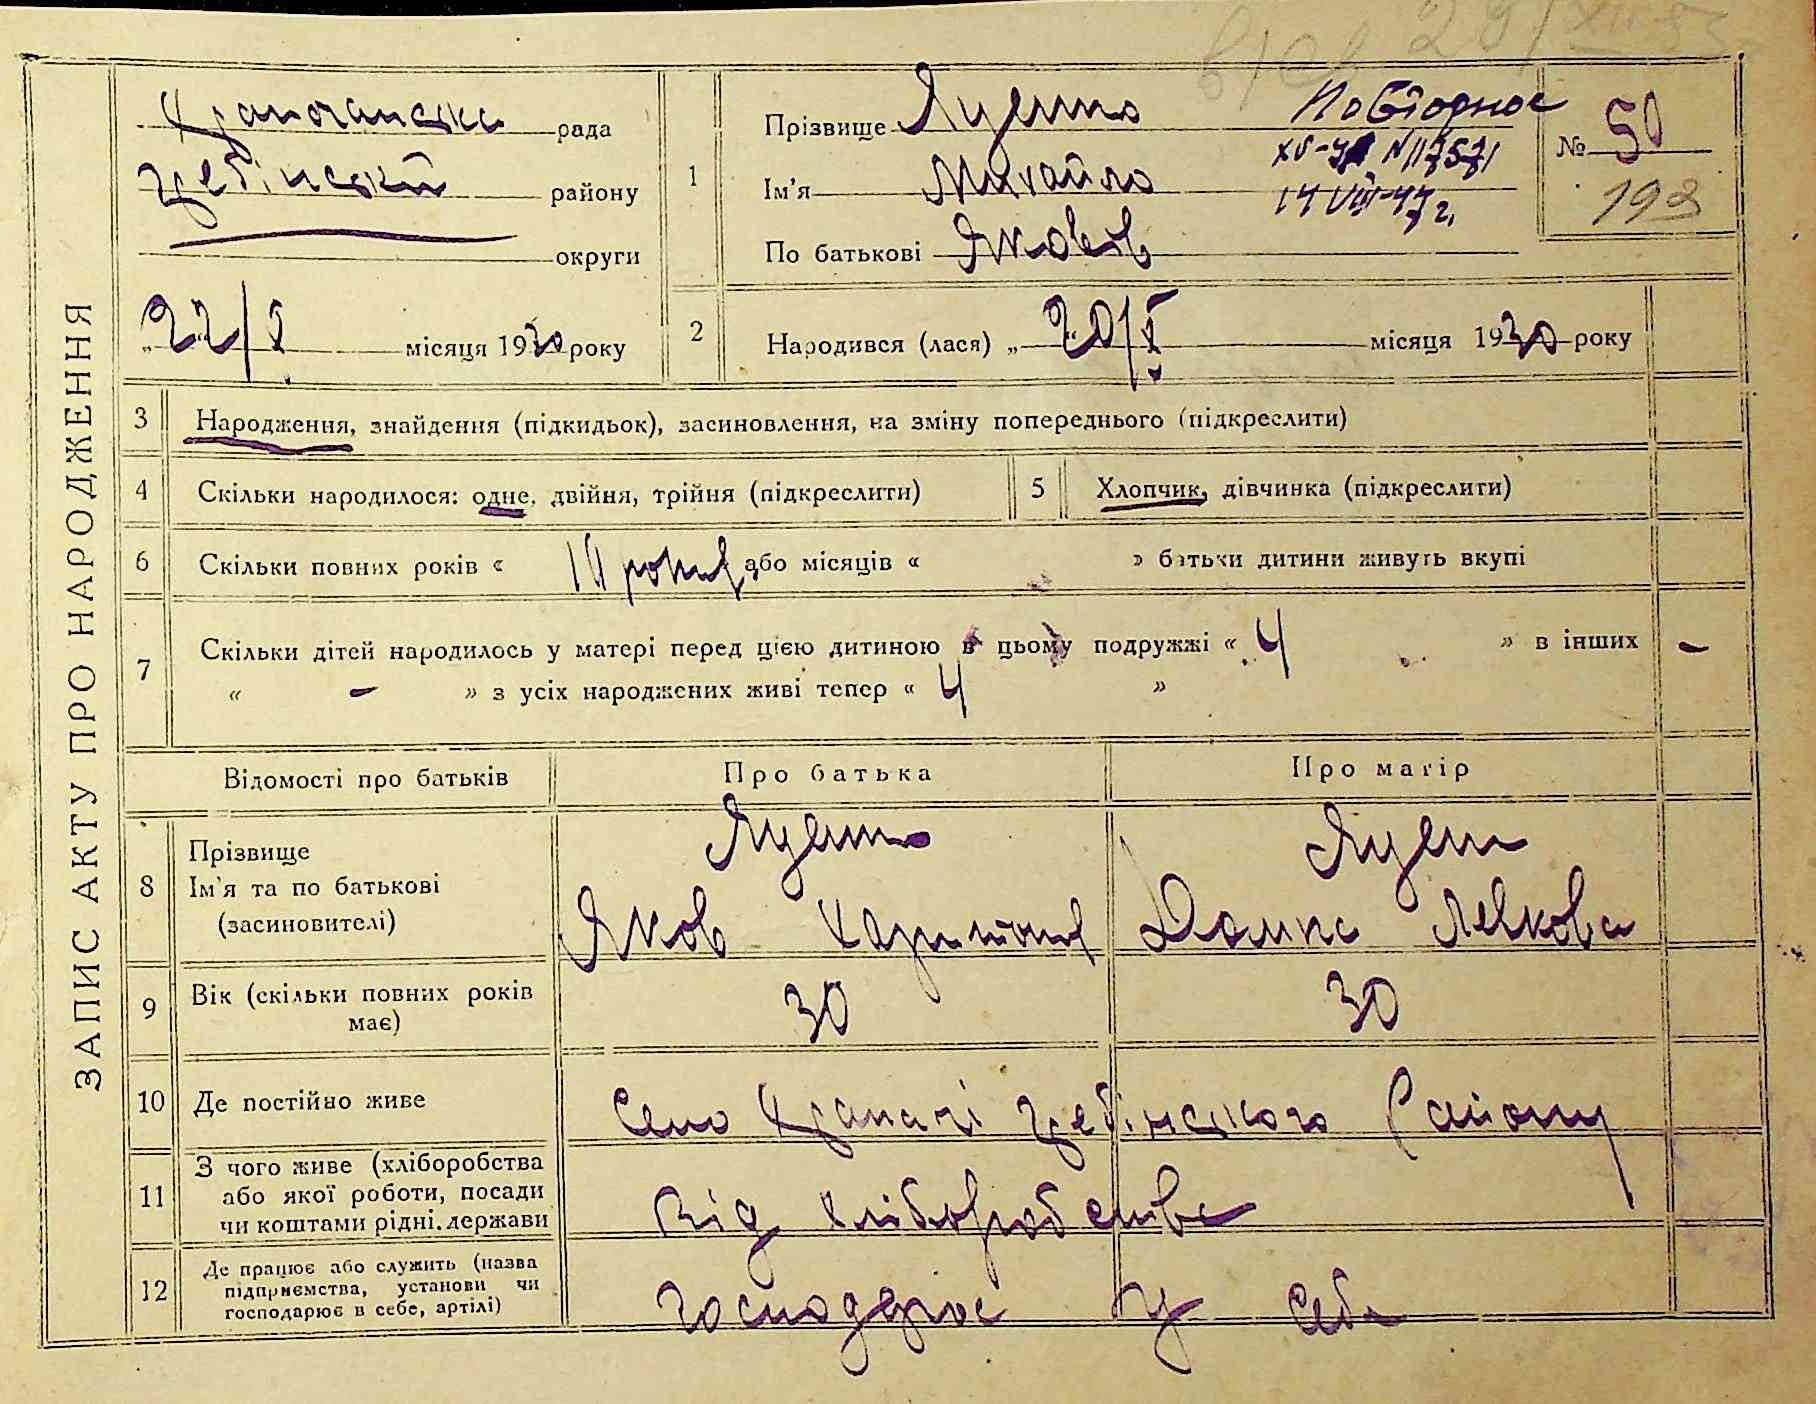 ЗАПИС АКТУ ПРО НАРОДЖЕННЯ
рада
району
округи
"22/X місяця 1930 року
1
Прізвище Яценко
Ім'я Михайло
По батькові Яковів
Повторное
14 VIII-47 г.
№ 50
193
2
Народився (лася) „20/X місяця 1930 року
3
Народження, знайдення (підкидьок), засиновлення, на зміну попереднього (підкреслити)
4
Скільки народилося: одне, двійня, трійня (підкреслити)
5
Хлопчик, дівчинка (підкреслити)
6
Скільки повних років « років або місяців « » батьки дитини живуть вкупі
7
Скільки дітей народилось у матері перед цією дитиною в цьому подружжі « 4 » в інших -
« - » з усіх народжених живі тепер « 4 »
Відомості про батьків
Про батька
Про матір
8
Прізвище
Ім'я та по батькові
(засиновителі)
Яценко
Яков Харитонів
Яценко
Домка Левкова
9
Вік (скільки повних років
має)
30
30
10
Де постійно живе
Село Гребінського Району
11
З чого живе (хліборобства
або якої роботи, посади
чи коштами рідні. держави
Від хліборобства
12
Де працює або служить (назва
підприємства, установи чи
господарює в себе, артілі)
Господарює у себе